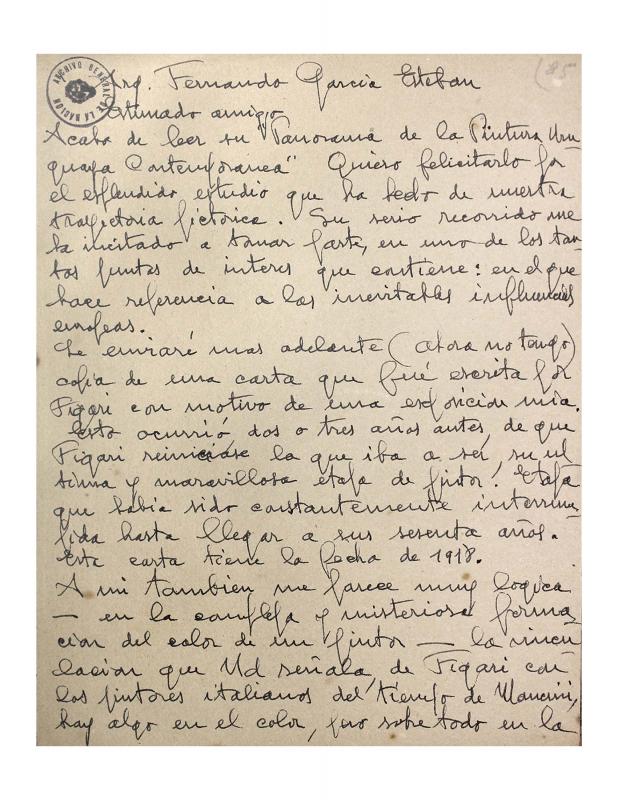 ARCHIVO GENERAL DE LA NACION
(85
Arq. Fernando García Esteban
Estimado amigo
Acabo de leer su "Panorama de la Pintura Uru
guaya Contemporanea" Quiero felicitarlo por
el esplendido estudio que ha hecho de nuestra
trayectoria pictórica. Su serio recorrido me
ha incitado a tomar parte, en uno de los tan-
tos puntos de interes que contiene: en el que
hace referencia a las inevitables influencias
europeas.
Le enviaré mas adelante (ahora no tengo)
copia de una carta que fué escrita por
Figari con motivo de una exposición mia.
Esto ocurrió dos o tres años antes de que
Figari reiniciase la que iba a ser, su ul
tima y maravillosa etapa de pintor. Etapa
que habia sido constantemente interrum
pida hasta llegar a sus sesenta años.
Esta carta tiene la fecha de 1918.
A mi también me parece muy logica
— en la compleja y misteriosa forma-
cion del color de un pintor — la vincu
lacion que Ud señala, de Figari con
los pintores italianos del tiempo de Mancini,
hay algo en el color, pero sobre todo en la